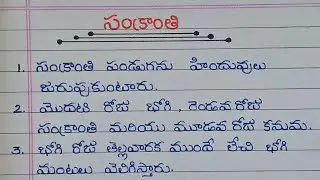 సంక్రాంతి
1. సంక్రాంతి పండుగను హిందువులు
జరుపుకుంటారు.
2. మొదటి రోజు భోగి, రెండవ రోజు
సంక్రాంతి మరియు మూడవ రోజు కనుమ.
3. భోగి రోజు తెల్లవారక ముందే లేచి భోగి
మంటలు వెలిగిస్తారు.